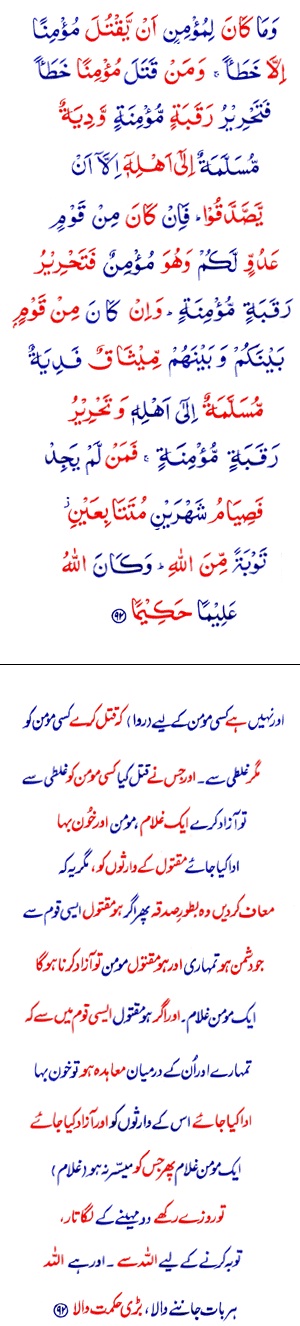 وَمَا كَانَ لِمُؤْمِنٍ اَنْ يَّقْتُلَ مُؤْمِنًا
اِلَّا خَطَـًٔا ۚ وَمَنْ قَتَلَ مُؤْمِنًا خَطَـًٔا
فَتَحْرِيْرُ رَقَبَةٍ مُّؤْمِنَةٍ وَّدِيَةٌ
مُّسَلَّمَةٌ اِلٰٓى اَهْلِهٖٓ اِلَّآ اَنْ
يَّصَّدَّقُوْا ؕ فَاِنْ كَانَ مِنْ قَوْمٍ
عَدُوٍّ لَّكُمْ وَهُوَ مُؤْمِنٌ فَتَحْرِيْرُ
رَقَبَةٍ مُّؤْمِنَةٍ ؕ وَاِنْ كَانَ مِنْ قَوْمٍۭ
بَيْنَكُمْ وَبَيْنَهُمْ مِّيْثَاقٌ فَدِيَةٌ
مُّسَلَّمَةٌ اِلٰٓى اَهْلِهٖ وَتَحْرِيْرُ
رَقَبَةٍ مُّؤْمِنَةٍ ۚ فَمَنْ لَّمْ يَجِدْ
فَصِيَامُ شَهْرَيْنِ مُتَتَابِعَيْنِ ۫
تَوْبَةً مِّنَ اللّٰهِ ؕ وَكَانَ اللّٰهُ
عَلِيْمًا حَكِيْمًا ﴿۹۲﴾
اور نہیں ہے کسی مؤمن کے لیے (روا) کہ قتل کرے کسی مؤمن کو
مگر غلطی سے۔ اور جس نے قتل کیا کسی مؤمن کو غلطی سے
تو آزاد کرے ایک غلام، مؤمن اور خُون بہا
ادا کیا جائے مقتول کے وارثوں کو، مگر یہ کہ
معاف کردیں وہ بطورِ صدقہ پھر اگر ہو مقتول ایسی قوم سے
جو دشمن ہو تمہاری اور ہو مقتول مومن تو آزاد کرنا ہوگا
ایک مومن غلام۔ اور اگر ہو مقتول ایسی قوم میں سے کہ
تمہارے اور اُن کے درمیان معاہدہ ہو تو خون بہا
ادا کیا جائے اس کے وارثوں کو اور آزاد کیا جائے
ایک مومن غلام پھر جس کو میسّر نہ ہو (غلام)
تو روزے رکھے دو مہینے کے لگا تار،
توبہ کرنے کے لیے اللہ سے۔ اور ہے اللہ
ہر بات جاننے والا، بڑی حکمت والا ﴿۹۲﴾